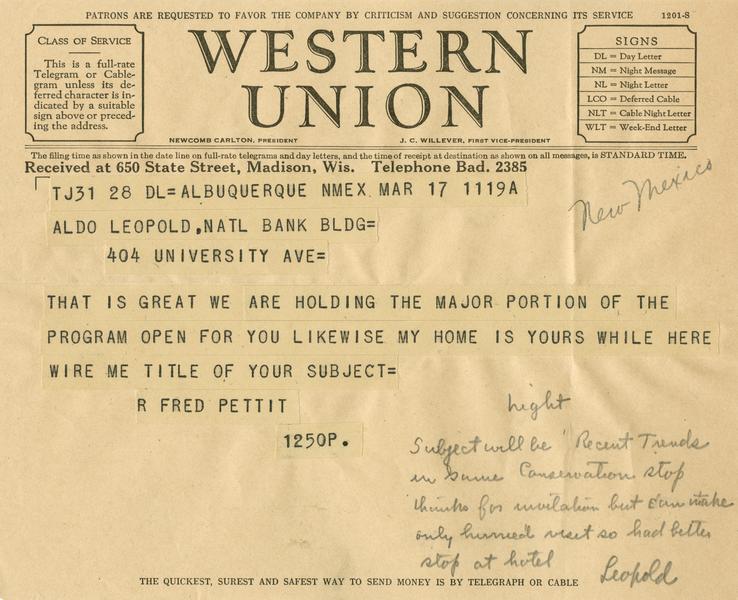 PATRONS ARE REQUESTED TO FAVOR THE COMPANY BY CRITICISM AND SUGGESTION CONCERNING ITS SERVICE 1201-S
CLASS OF SERVICE
This is a full-rate
Telegram or Cable-
gram unless its de-
ferred character is in-
dicated by a suitable
sign above or preced-
ing the address.
WESTERN
UNION
NEWCOMB CARLTON, PRESIDENT J. C. WILLEVER, FIRST VICE-PRESIDENT
SIGNS
DL = Day Letter
NM = Night Message
NL = Night Letter
LCO = Deferred Cable
NLT = Cable Night Letter
WLT = Week-End Letter
The filing time as shown in the date line on full-rate telegrams and day letters, and the time of receipt at destination as shown on all messages, is STANDARD TIME.
Received at 650 State Street, Madison, Wis. Telephone Bad. 2385
TJ31 28 DL=ALBUQUERQUE NMEX MAR 17 1119A
New Mexico
ALDO LEOPOLD,NATL BANK BLDG=
404 UNIVERSITY AVE=
THAT IS GREAT WE ARE HOLDING THE MAJOR PORTION OF THE
PROGRAM OPEN FOR YOU LIKEWISE MY HOME IS YOURS WHILE HERE
WIRE ME TITLE OF YOUR SUBJECT=
R FRED PETTIT
1250P.
night
Subject will be Recent Trends
in Game Conservation stop
thanks for invitation but can make
only hurried visit so had better
stop at hotel
Leopold
THE QUICKEST, SUREST AND SAFEST WAY TO SEND MONEY IS BY TELEGRAPH OR CABLE